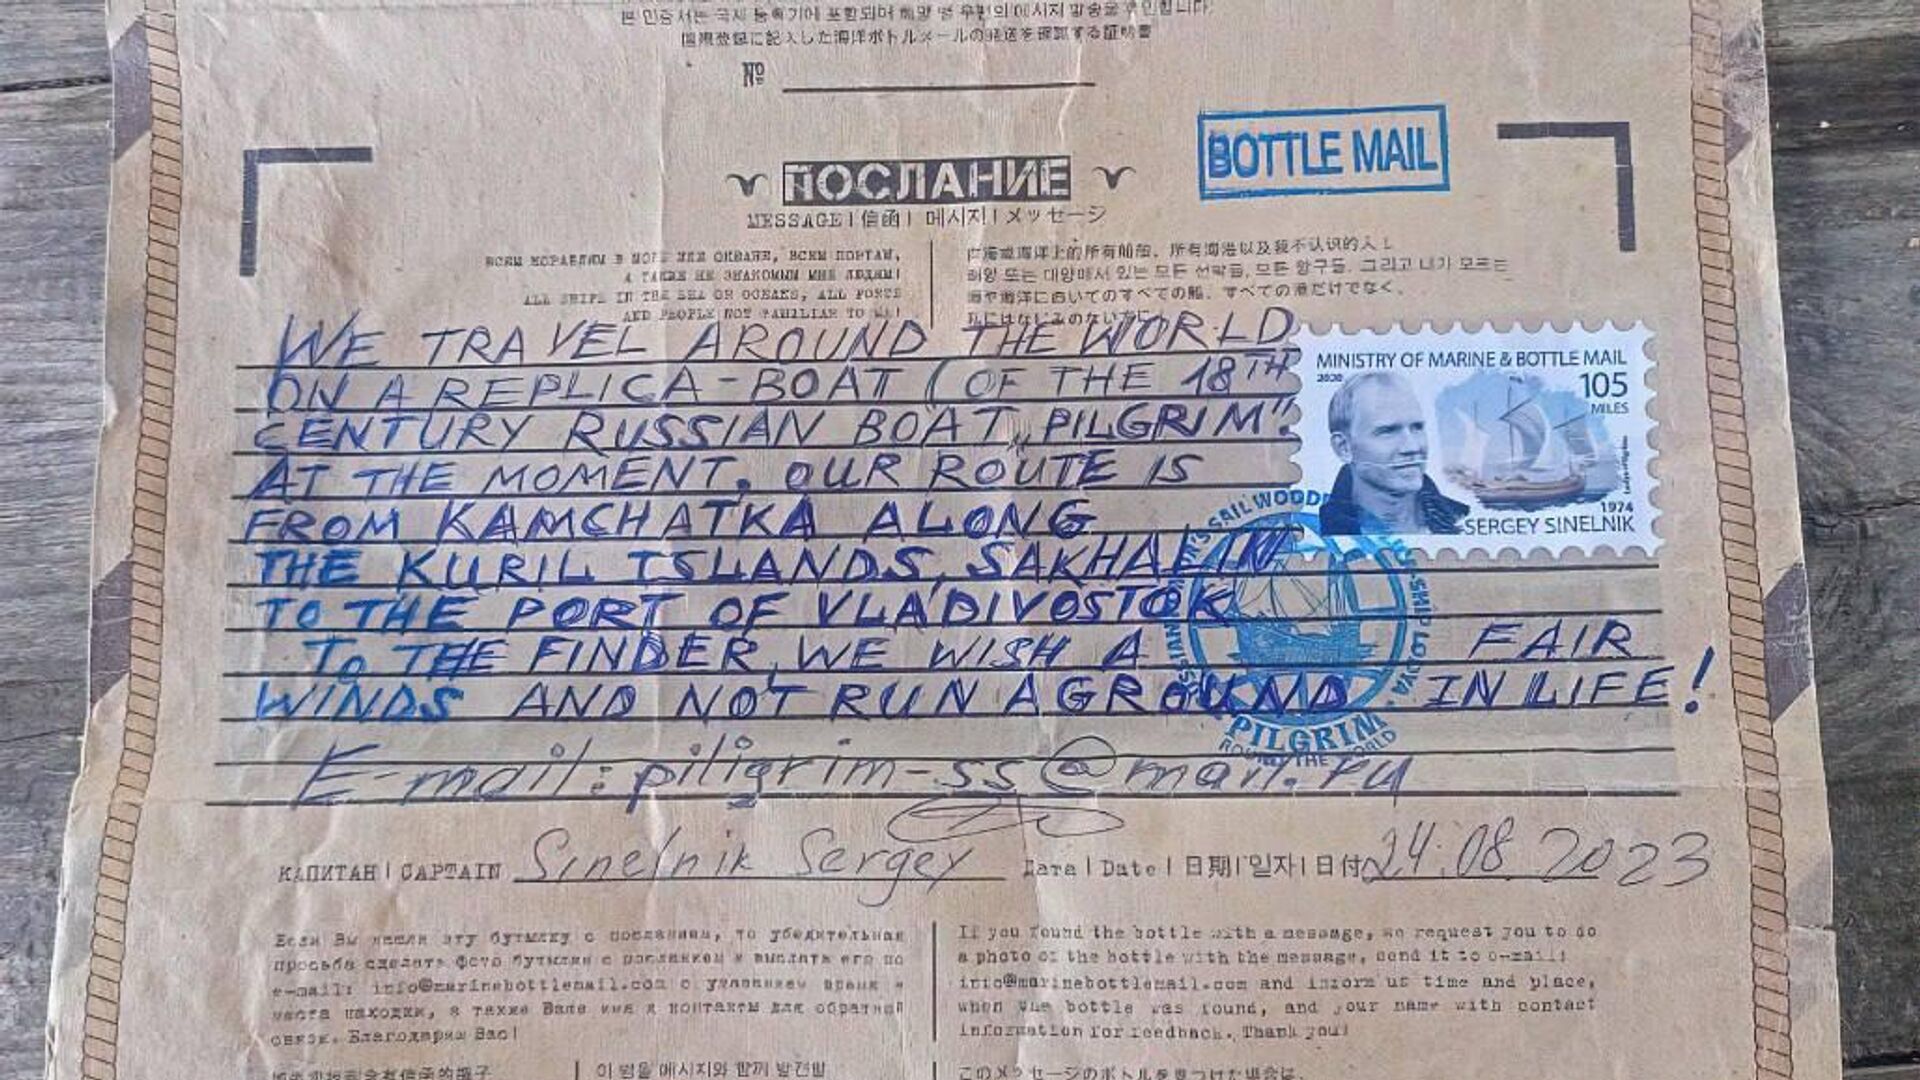 본 인증서는 국제 등록기에 포함되며 해양 병 우편의 메시지 발송을 확인합니다.
国際登録に記入した海洋ボトルメールの発送を確認する証明書
№
BOTTLE MAIL
ПОСЛАНИЕ
MESSAGE | 信函 | 메시지 | メッセージ
ВСЕМ КОРАБЛЯМ В МОРЕ ИЛИ ОКЕАНЕ, ВСЕМ ПОРТАМ,
А ТАКЖЕ НЕ ЗНАКОМЫМ МНЕ ЛЮДЯМ!
ALL SHIPS IN THE SEA OR OCEANS, ALL PORTS
AND PEOPLE NOT FAMILIAR TO ME!
海或海洋上的所有船舶、所有海港以及我不认识的人!
해양 또는 대양에서 있는 모든 선박들, 모든 항구들, 그리고 내가 모르는
海や海洋においてのすべての船、すべての港だけでなく、
WE TRAVEL AROUND THE WORLD
ON A REPLICA-BOAT (OF THE 18TH
CENTURY RUSSIAN BOAT „PILGRIM".
AT THE MOMENT, OUR ROUTE IS
FROM KAMCHATKA ALONG
THE KURIL ISLANDS, SAKHALIN
TO THE PORT OF VLADIVOSTOK
TO THE FINDER, WE WISH A FAIR
WINDS AND NOT RUN AGROUND IN LIFE!
E-mail: piligrim-ss@mail.ru
MINISTRY OF MARINE & BOTTLE MAIL
2020
105
MILES
1974
SERGEY SINELNIK
PILGRIM
ROUND THE WORLD
КАПИТАН | CAPTAIN Sinelnik Sergey Дата | Date | 日期 | 일자 | 日付 24.08.2023
Если Вы нашли эту бутылку с посланием, то убедительная
просьба сделать фото бутылки с посланием и выслать его по
e-mail: info@marinebottlemail.com с указанием время и
места находки, а также Ваше имя и контакты для обратной
связи. Благодарим Вас!
If you found the bottle with a message, we request you to do
a photo of the bottle with the message, send it to e-mail:
info@marinebottlemail.com and inform us time and place,
when the bottle was found, and your name with contact
information for feedback. Thank you!
이 병을 메시지와 함께 발견한
このメッセージのボトルを見つけた場合は、